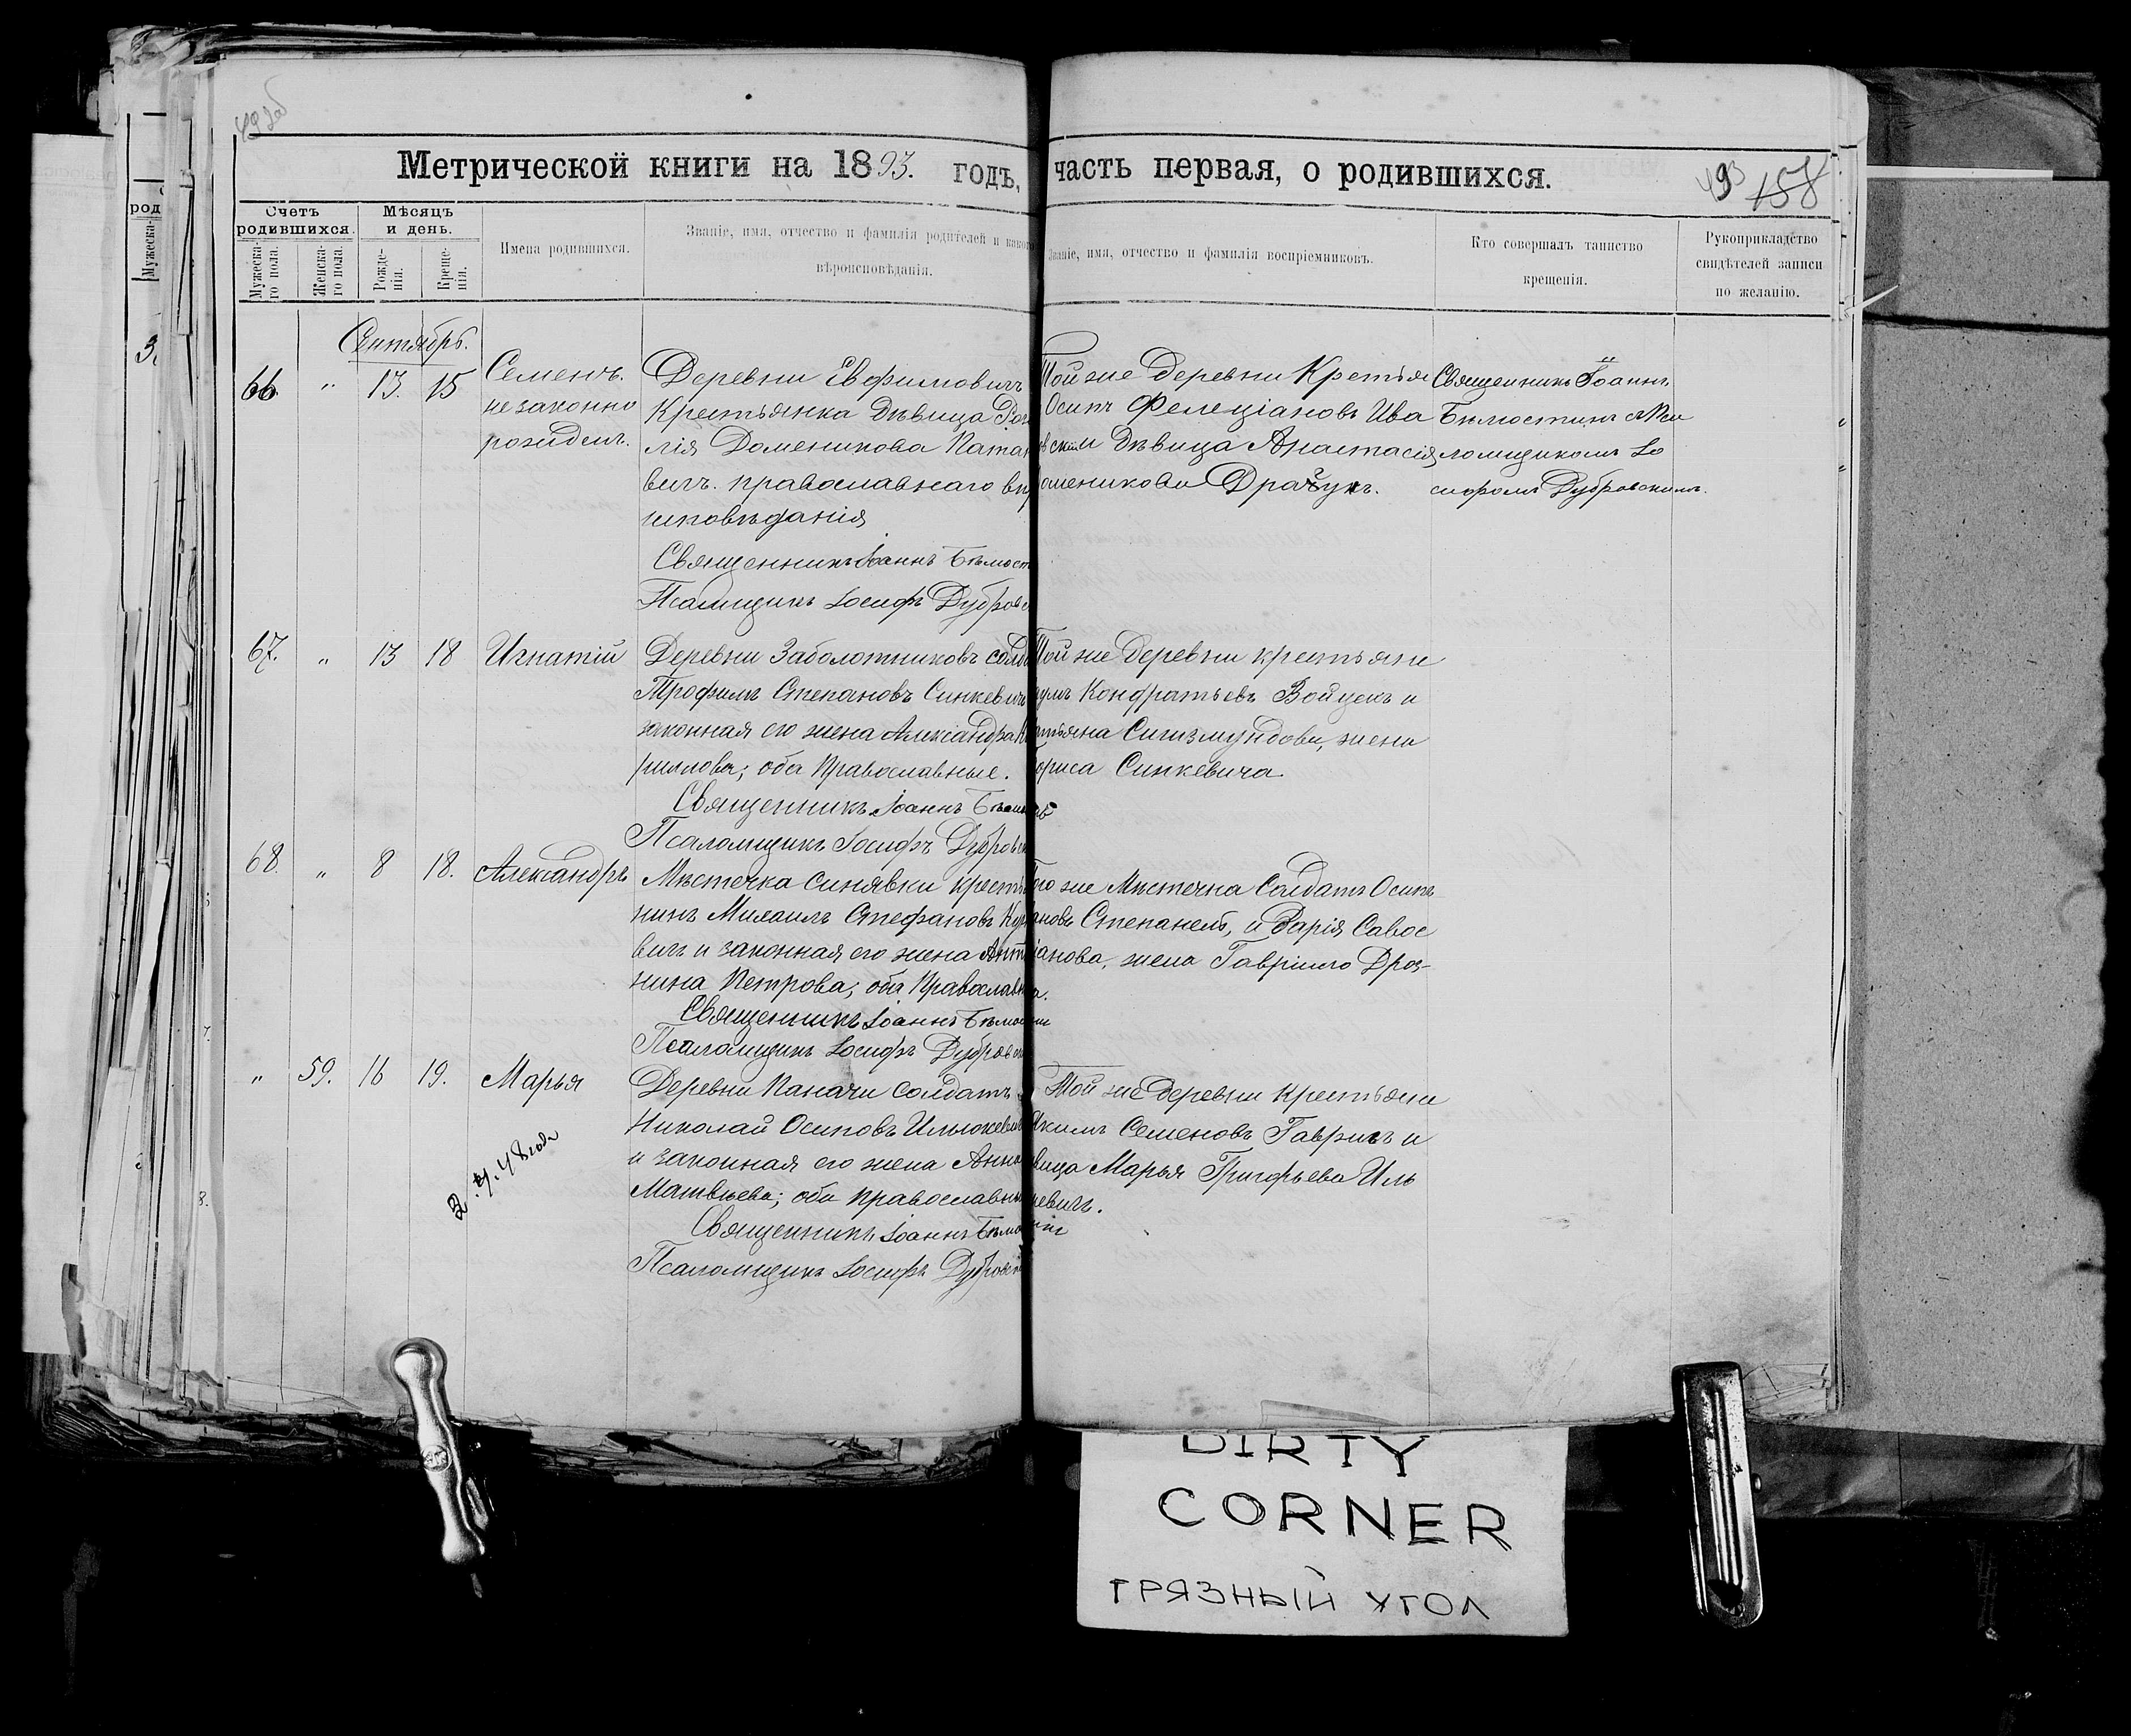 Метрической книги на 1893. годъ, часть первая, о родившихся.
493 158
Счетъ родившихся.
Мѣсяцъ и день.
Мужеска-го пола.
Женска-го пола.
Рожде-нія.
Креще-нія.
Имена родившихся.
Званіе, имя, отчество и фамилія родителей и какого
вѣроисповѣданія.
Званіе, имя, отчество и фамилія воспріемниковъ.
Кто совершалъ таинство
крещенія.
Рукоприкладство
свидѣтелей записи
по желанію.
род
Мужеска-
3.
Сентябрь.
66. " 13. 15
Семенъ.
незаконно
рожден.
Деревни Евфимовичъ
Крестьянка Дѣвица Ро
лія Доменикова Ната
вичъ. православнаго вѣ
исповѣданія
Священникъ Іоаннъ
Псаломщикъ Іосифъ Дубровс
Той же деревни Крестья
Осипъ Фелеціановъ Ива
вскій и дѣвица Анастасія
оменикова Драчукъ.
Священникъ Іоаннъ
съ Пса
ломщикомъ Іо
сифомъ Дубровскимъ.
67. " 13 18 Игнатій
Деревни Заболотниковъ солд
Трофимъ Степановъ Синкевичъ
законная его жена Александра
риллова; оба Православные.
Священникъ Іоаннъ
Псаломщикъ Іосифъ Дубровс
Той же деревни крестьяни
Кондратьевъ Войцехъ и
Сигизмундова, жена
ориса Синкевича.
68. " 8 18. Александръ
Мѣстечка Синявки крестья
нинъ Михаилъ Стефановъ
вичъ и законная его жена Анто
нина Петрова, оба Православн
Священникъ Іоаннъ
Псаломщикъ Іосифъ Дубровс
ого же Мѣстечка Солдатъ Осипъ
ановъ и Дарія Савос
іанова, жена Гавріила Дроз-
а.
" 59. 16 19. Марья
2.4.48 года
Деревни Каначи солдатъ
Николай Осиповъ Ильюкевич
и законная его жена Анна
Матвѣева; оба православны
Священникъ Іоаннъ
Псаломщикъ Іосифъ Дубровскій
Той же деревни Крестьяни
Якимъ Семеновъ Гавриㅤъ и
вица Марья Григорьева Иль
кевичъ.
DIRTY
CORNER
ГРЯЗНЫЙ УГОЛ